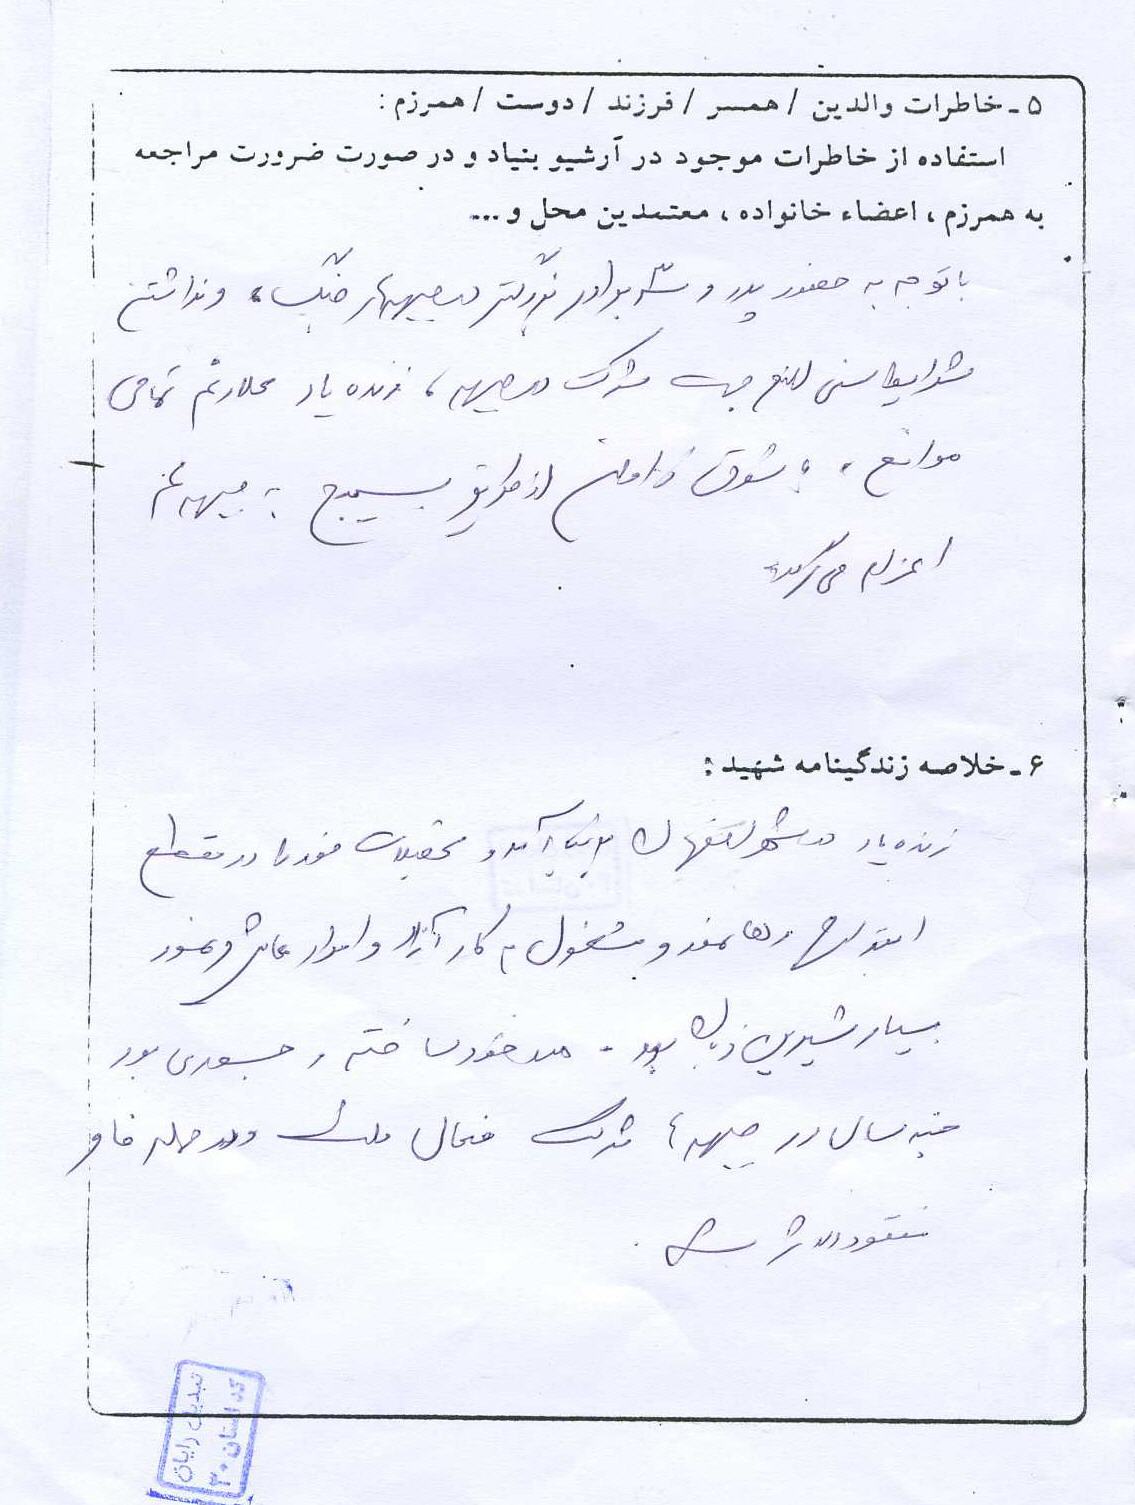 ۵ ـ خاطرات والدین / همسر / فرزند / دوست / همرزم :
استفاده از خاطرات موجود در آرشیو بنیاد و در صورت ضرورت مراجعه
به همرزم ، اعضاء خانواده ، معتمدین محل و ...
باتوجه به حضور پدر و سه برادر بزرگتر در جبهه‌های جنگ ، و نداشتن
شرایط سنی لازم جهت شرکت در جبهه ، زنده یاد علارغم تمامی
موانع ، با شوق فراوان از طریق بسیج به جبهه
اعزام می‌گردد
۶ ـ خلاصه زندگینامه شهید :
زنده یاد در شهر اصفهان بدنیا آمد و تحصیلات خود را در مقطع
ابتدایی رها نمود و مشغول به کار آزاد و امرار معاش نمود
بسیار شیرین زبان بود - مرد خودساخته و جسوری بود
سال در جبهه ها شرکت فعال داشت و در حمله فاو
مفقودالاثر شد .
تبدیل رایان
کد استان ۳۰